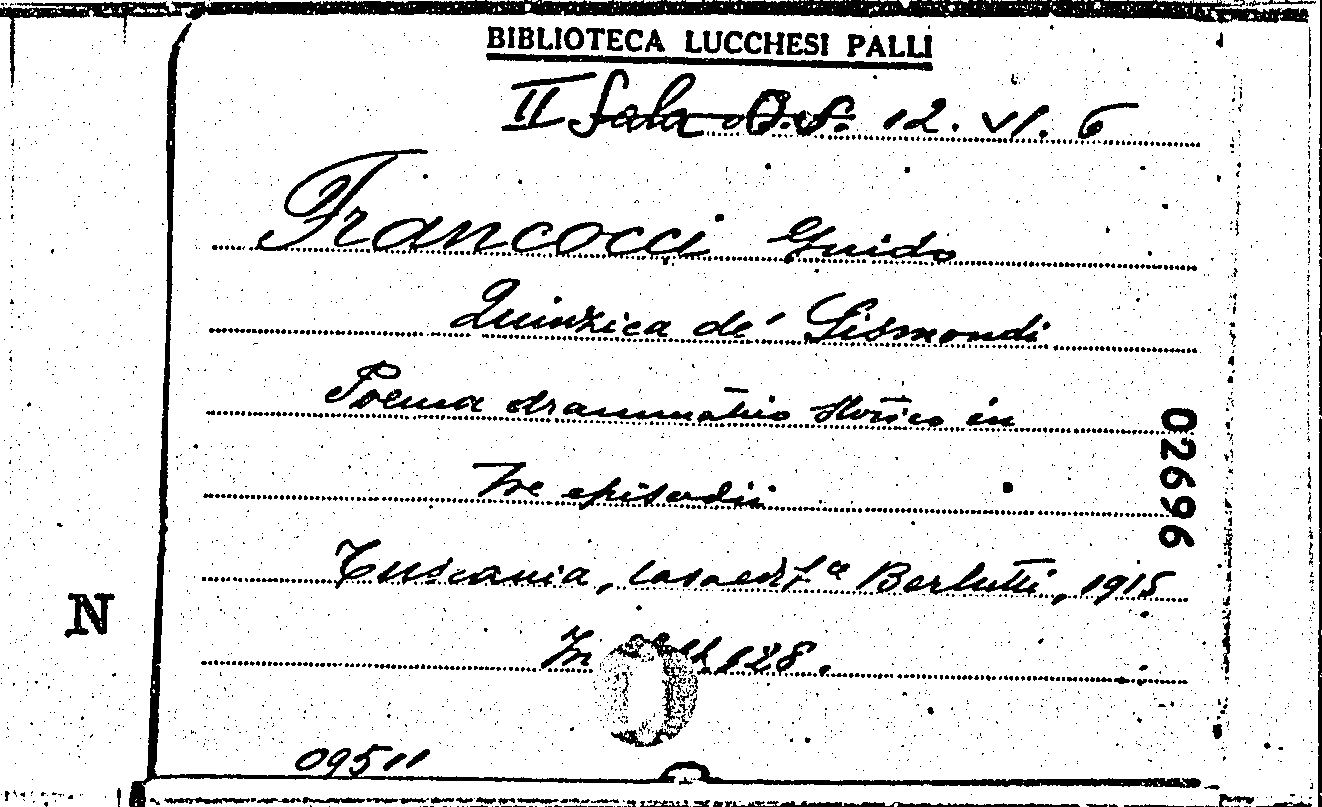 BIBLIOTECA LUCCHESI PALLI
II Sala 12. VI. 6
Francocci Guido
Quinzica de' Sismondi
Poema drammatico storico in
Tre episodii
02696
Tuscania, casa ed. Berlutti, 1915
N
In 128.
09511